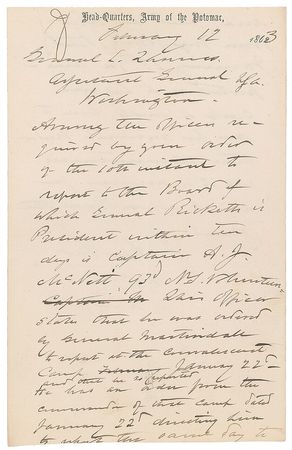 Head-Quarters, Army of the Potomac,
February 12 1863
General L. Thomas
Adjutant General USA.
Washington.
Among the officers re-
quired by your order
of the 10th instant to
report to the Board of
which General Ricketts is
President within ten
days is Captain A. J.
McNett 93d N.Y. Volunteers.
This Officer
states that he was ordered
by General Martindale
to report at the convalescent
Camp January 22d
and that he so reported
He has an order from the
commander of that camp dated
January 22d directing him
to report the same day to